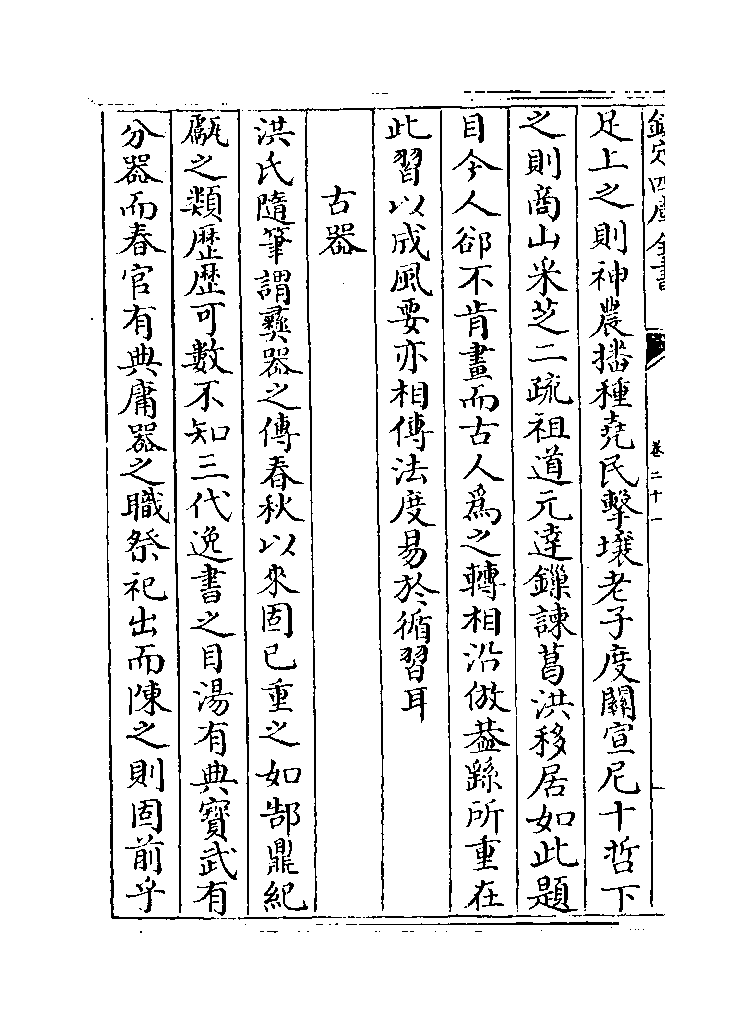 欽定四庫全書
卷二十一
足上之則神農播種堯民擊壤老子度關宣尼十哲下
之則商山采芝二疏祖道元達鏁諫葛洪移居如此題
目今人卻不肯畫而古人為之轉相沿倣葢繇所重在
此習以成風要亦相傳法度易於循習耳
古器
洪氏隨筆謂彞器之傳春秋以來固已重之如郜鼎紀
甗之類歷歷可數不知三代逸書之目湯有典寶武有
分器而春官有典庸器之職祭祀出而陳之則固前乎